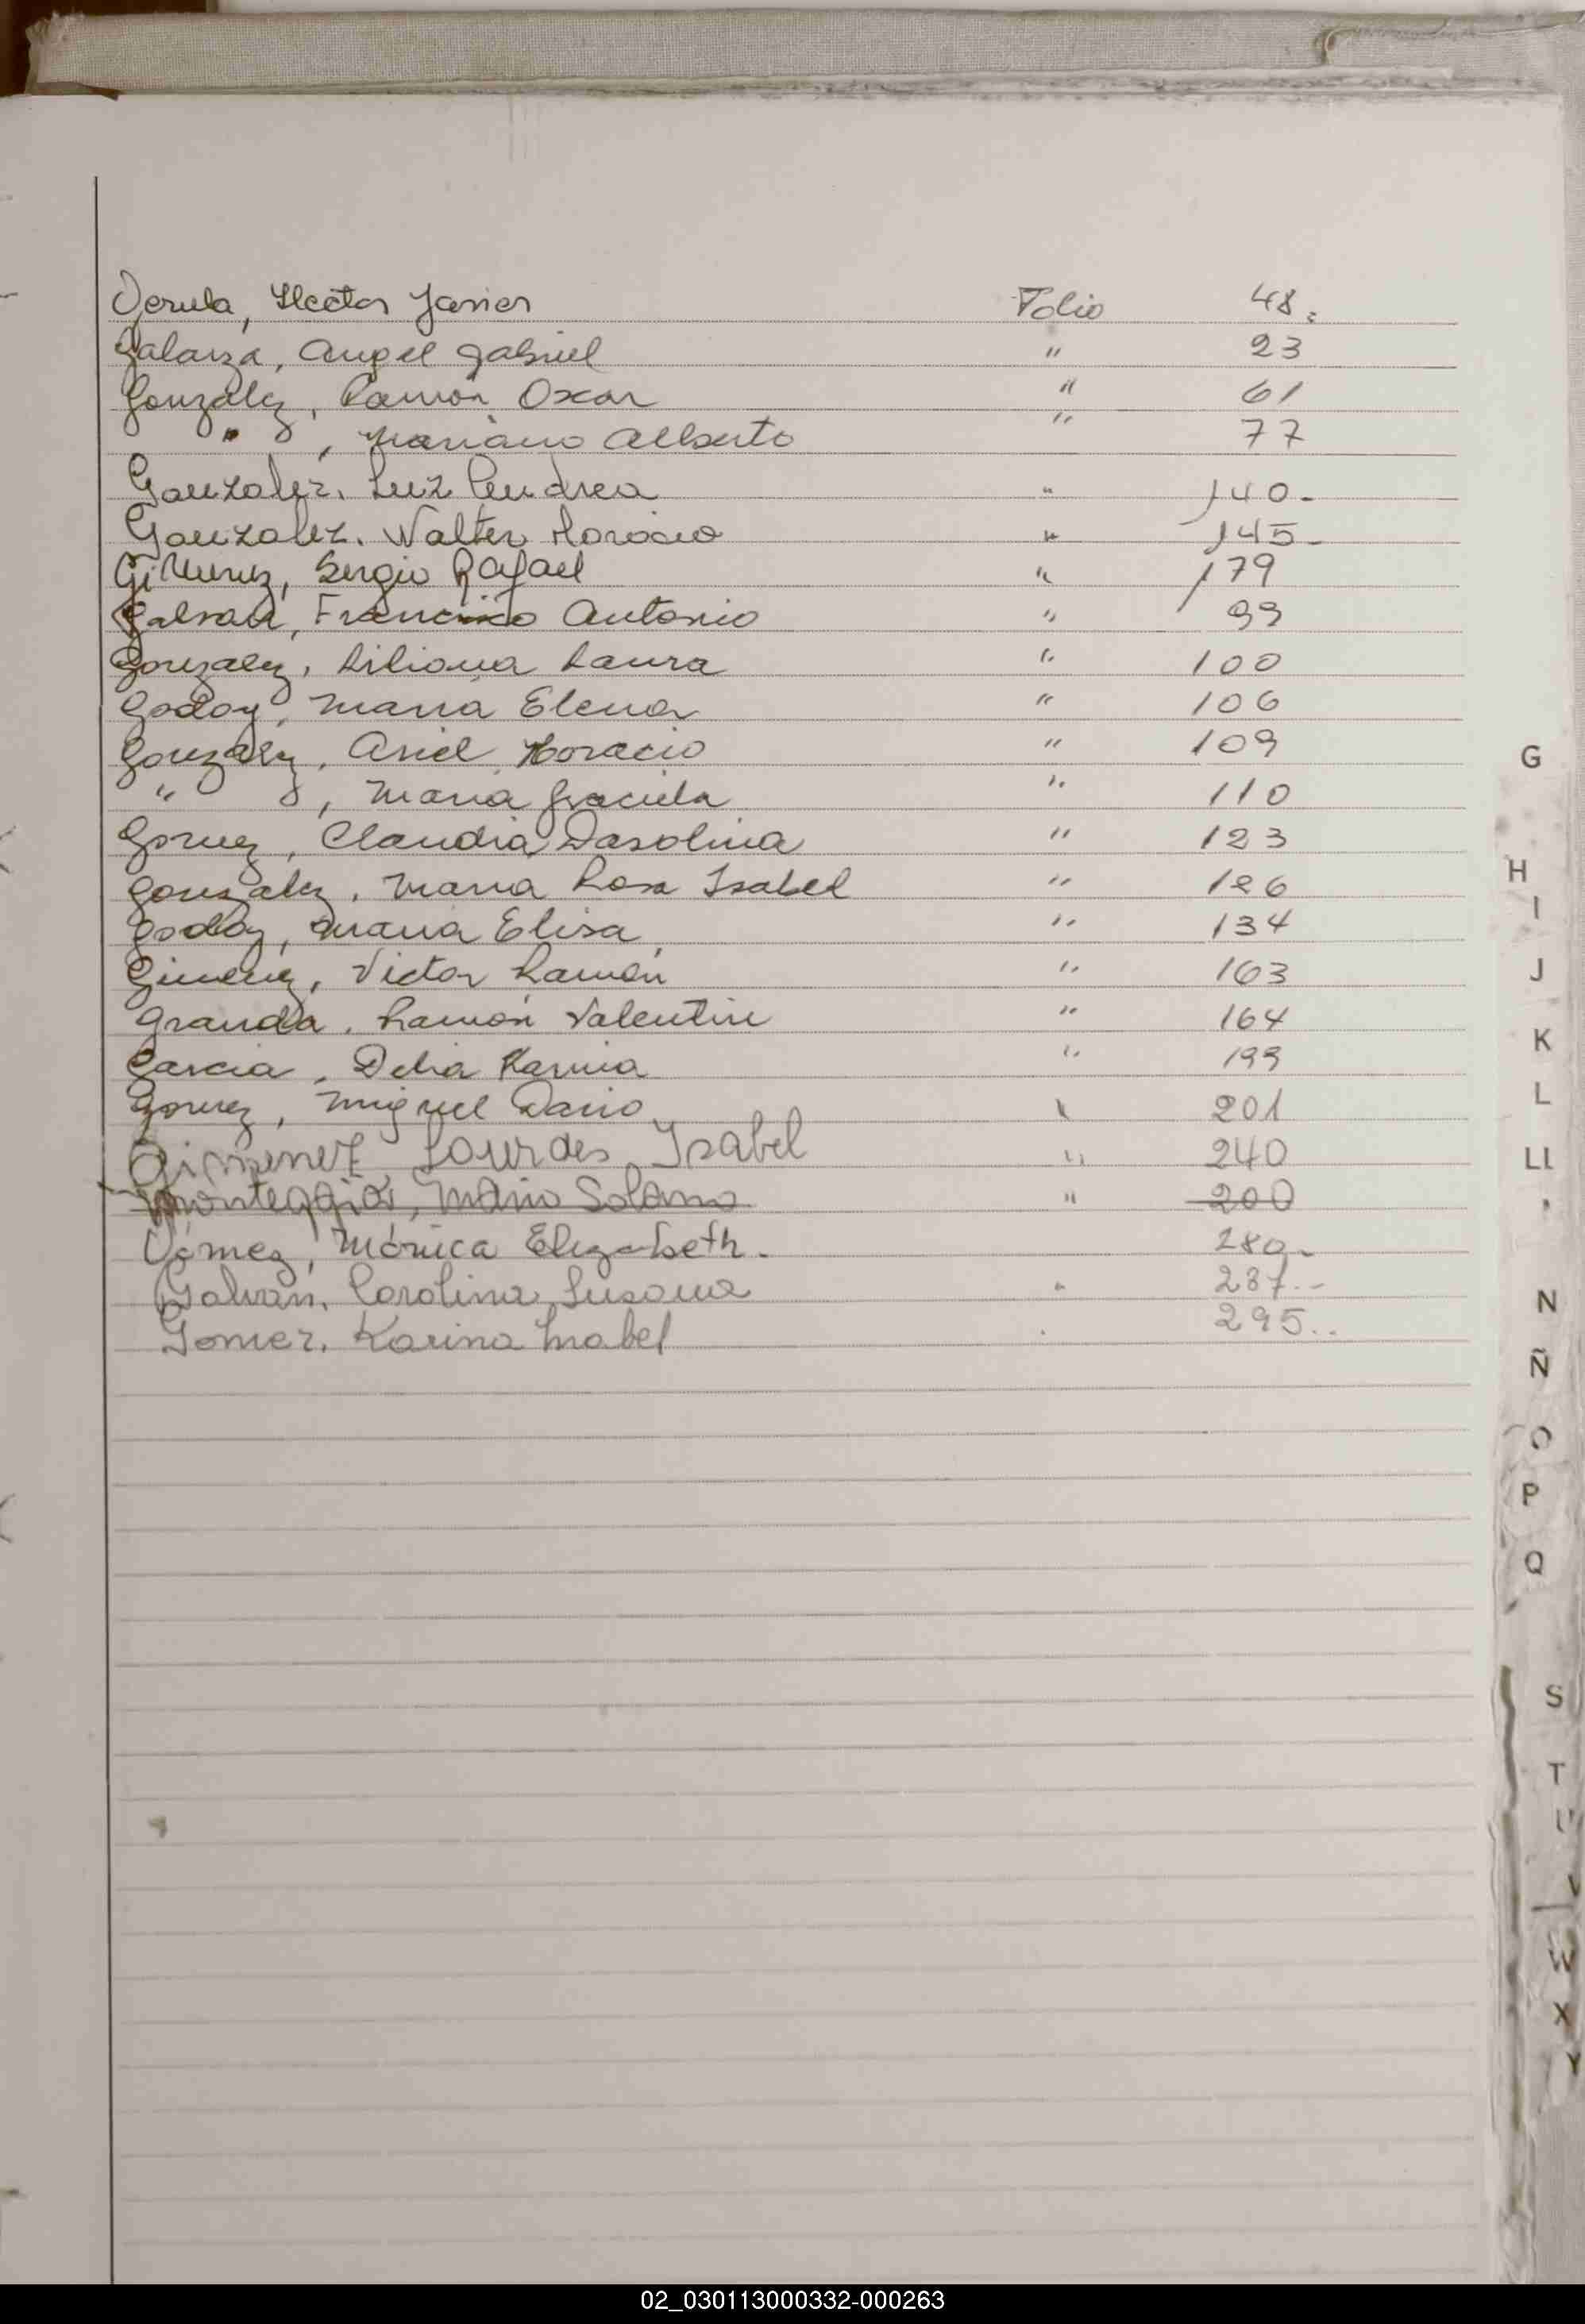 Gerula, Hector Javier Folio 48.
Galarza, Angel Gabriel " 23
Gonzalez, Ramón Oscar " 61
" , Mariano Alberto " 77
Gonzalez. Luz Andrea " 140.
Gonzalez. Walter Horacio " 145.
Gimenez, Sergio Rafael " 179
Galvan, Francisco Antonio " 99
Gonzalez, Liliana Laura " 100
Godoy, Maria Elena " 106
Gonzalez, Ariel Horacio " 109
" , Maria Graciela " 110
Gomez, Claudia Dasolina " 123
Gonzalez, Maria Rosa Isabel " 126
Godoy, Maria Elisa " 134
Gimenez, Victor Ramón " 163
Granda, Ramón Valentin " 164
Garcia, Delia Karina " 199
Gomez, Miguel Dario " 201
Gimenez Lourdes Isabel " 240
Monteggia, Mario Solano " 200
Gómez, Mónica Elizabeth. 280.
Galván, Carolina Susana " 287..
Gomez. Karina Mabel . 295..
G
H
I
J
K
L
LL
N
Ñ
O
P
Q
S
T
U
V
W
X
Y
02_030113000332-000263